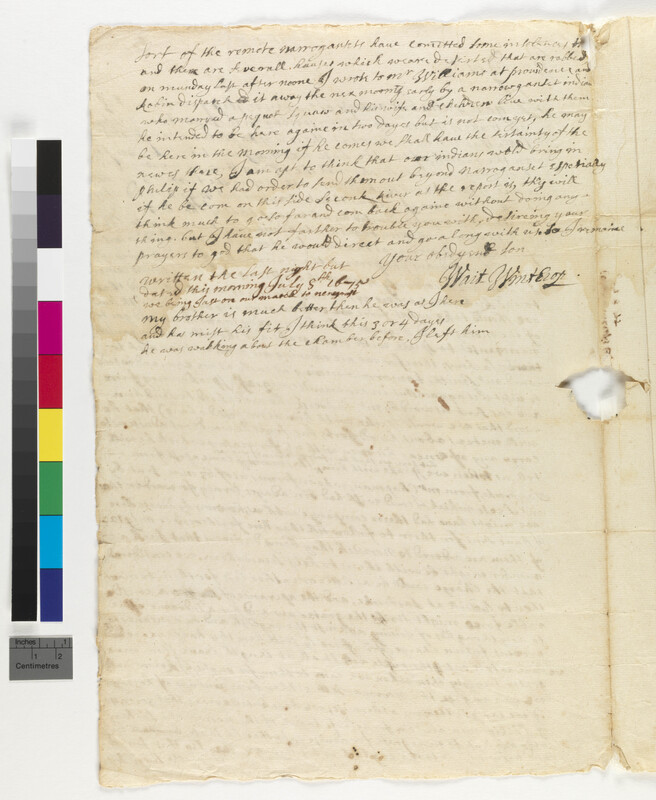 sort of the remote narrogansets have comitted some insolencies
and there are severall houses which weare deserted that are robed
on munday last after noone I wrote to mr Williams at providence and
Robin dispatched it away the next morning early by a narowganset indian
who maryed a pequot squaw and his wife and children live with them
he intended to be here againe in two dayes but is not com yet, he may
be here in the morning if he comes we shall have the certainty of the
newes there, I am apt to think that our indians would bring in
philip if we had order to send them out beyond narroganset especially
if he be com on this side Secunk River as the report is, they will
think much to go so far and com back againe without doing any
thing. but I have not farther to trouble you with, desireing your
prayers to god that he would direct and go along with us, I remaine
Your obedyent son
Wait Winthrop.
written the last night but
dated this morning July 8th 1675
we being just on our march to
my brother is much better then he was as I hear
and has mist his fit I think this 3 or 4 dayes
he was walking about the chamber before I left him
Inches 1
1 2
Centimetres